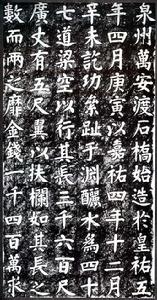 泉州萬安渡石橋始造於皇祐五
年四月庚寅以嘉祐四年十二月
辛未訖功絫趾于淵釃水為四十
七道梁空以行其長三千六百尺
廣丈有五尺翼以扶欄如其長之
數而兩之靡金錢一千四百萬求